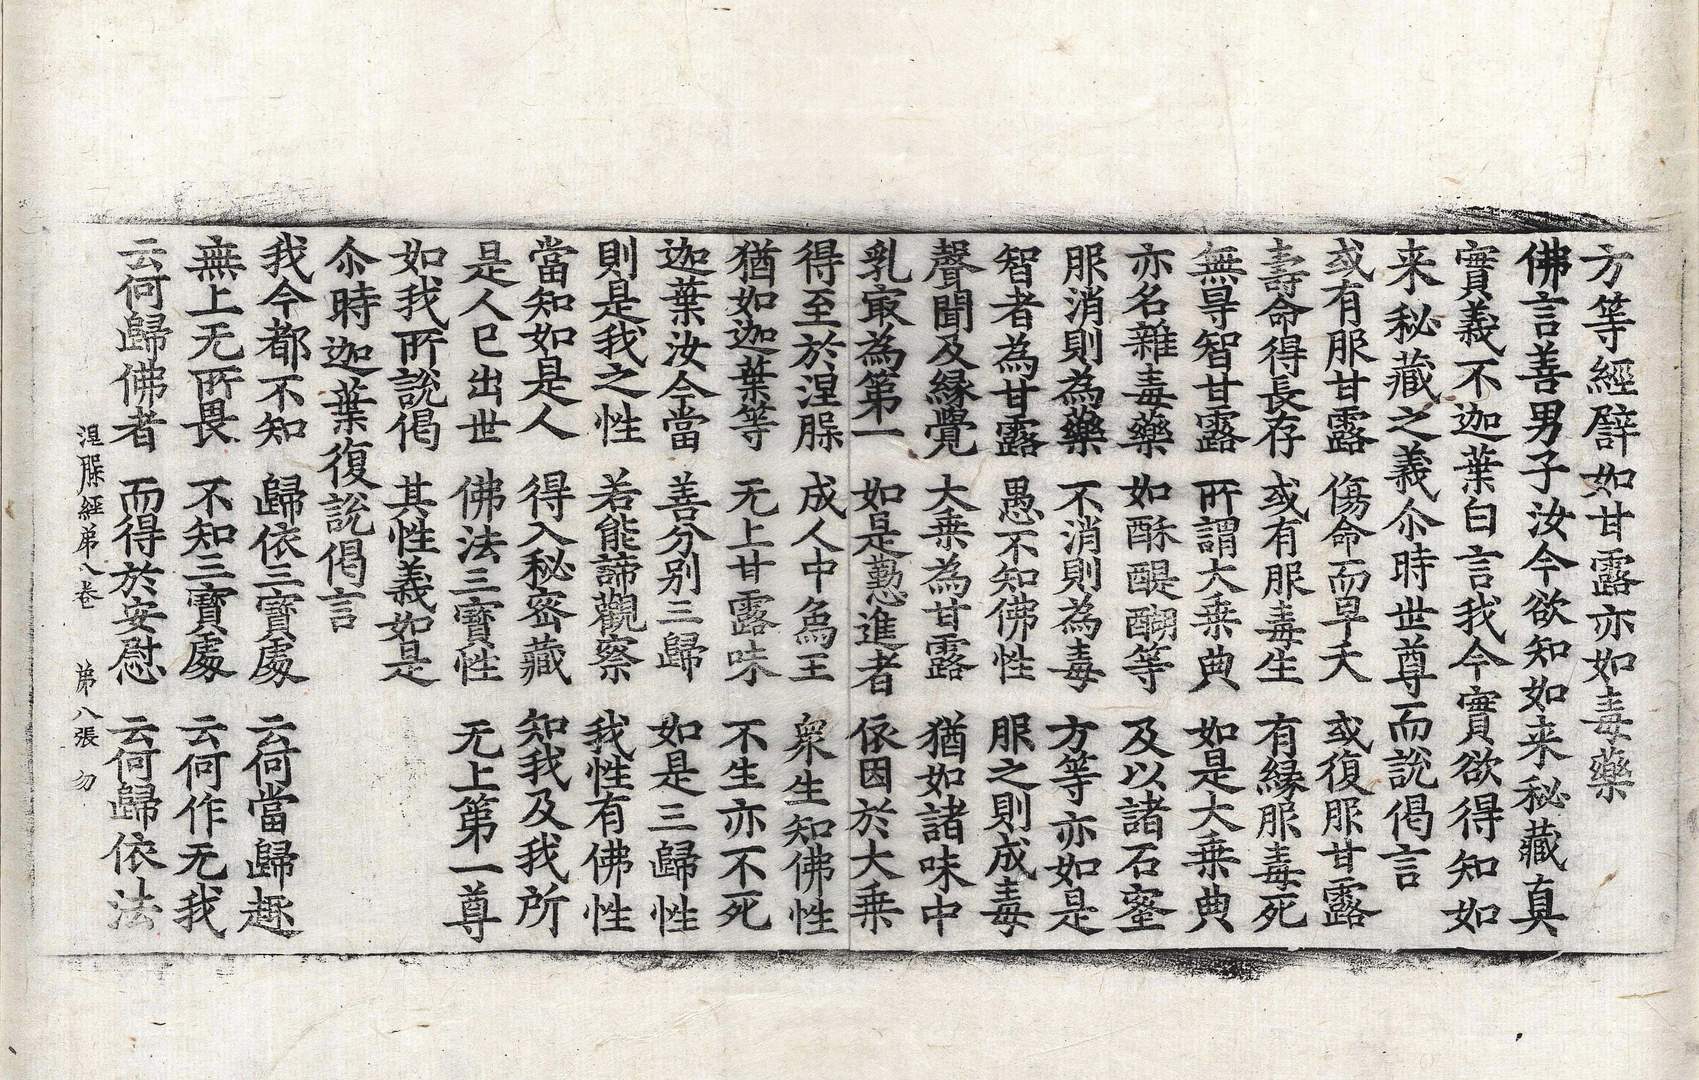 方等經譬如甘露亦如毒藥
佛言善男子汝今欲知如来秘藏真
實義不迦葉白言我今實欲得知如
来秘藏之義尒時世尊而說偈言
或有服甘露 傷命而早夭 或復服甘露
壽命得長存 或有服毒生 有緣服毒死
無㝵智甘露 所謂大乗典 如是大乗典
亦名雜毒藥 如酥醍醐等 及以諸石蜜
服消則為藥 不消則為毒 方等亦如是
智者為甘露 愚不知佛性 服之則成毒
聲聞及緣覺 大乗為甘露 猶如諸味中
乳冣為第一 如是懃進者 依因於大乗
得至於涅槃 成人中爲王 衆生知佛性
猶如迦葉等 无上甘露味 不生亦不死
迦葉汝今當 善分别三歸 如是三歸性
則是我之性 若能諦觀察 我性有佛性
當知如是人 得入秘密藏 知我及我所
是人已出世 佛法三寶性 无上第一尊
如我所說偈 其性義如是
尒時迦葉復說偈言
我今都不知 歸依三寶處 云何當歸趣
無上无所畏 不知三寶處 云何作无我
云何歸佛者 而得於安慰 云何歸依法
涅槃經第八卷 第八張 勿